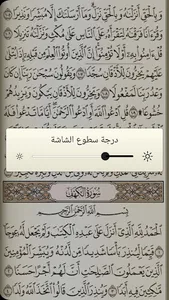 وَبِٱلْحَقِّ أَنزَلْنَٰهُ وَبِٱلْحَقِّ نَزَلَ وَمَآ أَرْسَلْنَٰكَ إِلَّا مُبَشِّرًا وَنَذِيرًا
وَقُرْءَانًا فَرَقْنَٰهُ لِتَقْرَأَهُۥ عَلَى ٱلنَّاسِ عَلَىٰ مُكْثٍ وَنَزَّلْنَٰهُ تَنزِيلًا
قُلْ ءَامِنُوا۟ بِهِۦٓ أَوْ لَا تُؤْمِنُوٓا۟ إِنَّ ٱلَّذِينَ أُوتُوا۟ ٱلْعِلْمَ مِن قَبْلِهِۦٓ إِذَا يُتْلَىٰ
عَلَيْهِمْ يَخِرُّونَ لِلْأَذْقَانِ سُجَّدًا وَيَقُولُونَ سُبْحَٰنَ رَبِّنَآ إِن كَانَ
وَعْدُ رَبِّنَا لَمَفْعُولًا وَيَخِرُّونَ لِلْأَذْقَانِ يَبْكُونَ وَيَزِيدُهُمْ
خُشُوعًا قُلِ ٱدْعُوا۟ ٱللَّهَ أَوِ ٱدْعُوا۟ ٱلرَّحْمَٰنَ أَيًّا مَّا تَدْعُوا۟ فَلَهُ
درجة سطوع الشاشة
سُورَةُ الكَهْفِ
بِسْمِ ٱللَّهِ ٱلرَّحْمَٰنِ ٱلرَّحِيمِ
ٱلْحَمْدُ لِلَّهِ ٱلَّذِىٓ أَنزَلَ عَلَىٰ عَبْدِهِ ٱلْكِتَٰبَ وَلَمْ يَجْعَل لَّهُۥ عِوَجَا
قَيِّمًا لِّيُنذِرَ بَأْسًا شَدِيدًا مِّن لَّدُنْهُ وَيُبَشِّرَ ٱلْمُؤْمِنِينَ
ٱلَّذِينَ يَعْمَلُونَ ٱلصَّٰلِحَٰتِ أَنَّ لَهُمْ أَجْرًا حَسَنًا
مَّٰكِثِينَ فِيهِ أَبَدًا وَيُنذِرَ ٱلَّذِينَ قَالُوا۟ ٱتَّخَذَ ٱللَّهُ وَلَدًا